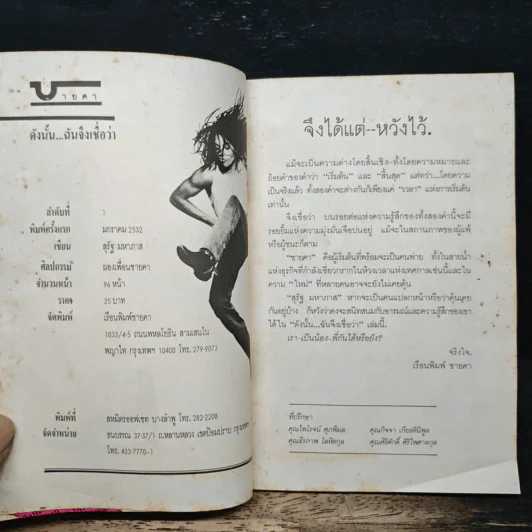 ชายคา
ดังนั้น...ฉันจึงเชื่อว่า
ลำดับที่ 1
พิมพ์ครั้งแรก มกราคม 2532
เขียน สุรัฐ มหาภาส
ศิลปกรรม ผองเพื่อนชายคา
จำนวนหน้า 96 หน้า
ราคา 25 บาท
จัดพิมพ์ เรือนพิมพ์ชายคา
1033/4-5 ถนนพหลโยธิน สามเสนใน
พญาไท กรุงเทพฯ 10400 โทร. 279-9073
พิมพ์ที่ สหมิตรออฟเซท บางลำพู โทร. 282-2208
จัดจำหน่าย ธนบรรณ 37-37/1 ถ.หลานหลวง เขตป้อมปราบ กรุงเทพฯ
โทร. 433-7770-1
จึงได้แต่--หวังไว้.
แม้จะเป็นความต่างโดยสิ้นเชิง--ทั้งโดยความหมายและ
ถ้อยคำของคำว่า "เริ่มต้น" และ "สิ้นสุด" แต่ทว่า...โดยความ
เป็นจริงแล้ว ทั้งสองคำจะต่างกันก็เพียงแค่ "เวลา" แห่งการเริ่มต้น
เท่านั้น
จึงเชื่อว่า บนรอยต่อแห่งความรู้สึกของทั้งสองคำนี้จะมี
รอยยิ้มแห่งความมุ่งมั่นเจือปนอยู่ แม้จะในสถานภาพของผู้แพ้
หรือผู้ชนะก็ตาม
"ชายคา" คือผู้เริ่มต้นที่พร้อมจะเป็นคนพ่าย ทั้งในสายน้ำ
แห่งธุรกิจที่กำลังเชี่ยวกรากในห้วงเวลาแห่งเทศกาลเช่นนี้และใน
ความ "ใหม่" ที่หลายคนอาจจะยังไม่เคยคุ้น
"สุรัฐ มหาภาส" หากจะเป็นคนแปลกหน้าหรือว่าคุ้นเคย
กันอยู่บ้าง ก็หวังว่าคงจะสนิทสนมกับอารมณ์และความรู้สึกของเขา
ได้ใน "ดังนั้น...ฉันจึงเชื่อว่า" เล่มนี้.
เรา-เป็นน้อง-พี่กันได้หรือยัง?
จริงใจ.
เรือนพิมพ์ ชายคา
ที่ปรึกษา
คุณไพโรจน์ ศุภพิมล คุณกิจจา เกียรตินิพูล
คุณธีรภาพ โลหิตกุล คุณศิริศักดิ์ ศิริไพศาลกุล